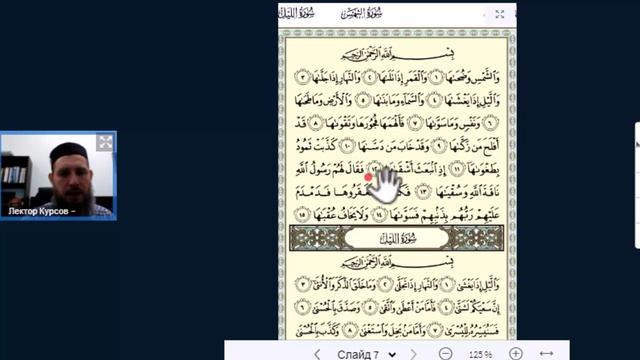 سُورَةُ الشَّمْسِ سُورَةُ اللَّيْلِ
بِسْمِ اللَّهِ الرَّحْمَٰنِ الرَّحِيمِ
وَالشَّمْسِ وَضُحَىٰهَا ١ وَالْقَمَرِ إِذَا تَلَىٰهَا ٢ وَالنَّهَارِ إِذَا جَلَّىٰهَا ٣
وَالَّيْلِ إِذَا يَغْشَىٰهَا ٤ وَالسَّمَاءِ وَمَا بَنَىٰهَا ٥ وَالْأَرْضِ وَمَا طَحَىٰهَا
٦ وَنَفْسٍ وَمَا سَوَّىٰهَا ٧ فَأَلْهَمَهَا فُجُورَهَا وَتَقْوَىٰهَا ٨ قَدْ
أَفْلَحَ مَن زَكَّىٰهَا ٩ وَقَدْ خَابَ مَن دَسَّىٰهَا ١٠ كَذَّبَتْ ثَمُودُ
بِطَغْوَىٰهَا ١١ إِذِ انبَعَثَ ١٢ فَقَالَ لَهُمْ رَسُولُ اللَّهِ
نَاقَةَ اللَّهِ وَسُقْيَىٰهَا ١٣ فَدَمْدَمَ
عَلَيْهِمْ رَبُّهُم بِذَنبِهِمْ فَسَوَّىٰهَا ١٤ وَلَا يَخَافُ عُقْبَىٰهَا ١٥
سُورَةُ اللَّيْلِ
بِسْمِ اللَّهِ الرَّحْمَٰنِ الرَّحِيمِ
وَالَّيْلِ إِذَا يَغْشَىٰ ١ وَالنَّهَارِ إِذَا تَجَلَّىٰ ٢ وَمَا خَلَقَ الذَّكَرَ وَالْأُنثَىٰ ٣
إِنَّ سَعْيَكُمْ لَشَتَّىٰ ٤ فَأَمَّا مَنْ أَعْطَىٰ وَاتَّقَىٰ ٥ وَصَدَّقَ بِالْحُسْنَىٰ ٦
فَسَنُيَسِّرُهُ لِلْيُسْرَىٰ ٧ وَأَمَّا مَن بَخِلَ وَاسْتَغْنَىٰ ٨ وَكَذَّبَ بِالْحُسْنَىٰ
Лектор Курсов –
Слайд 7
125 %